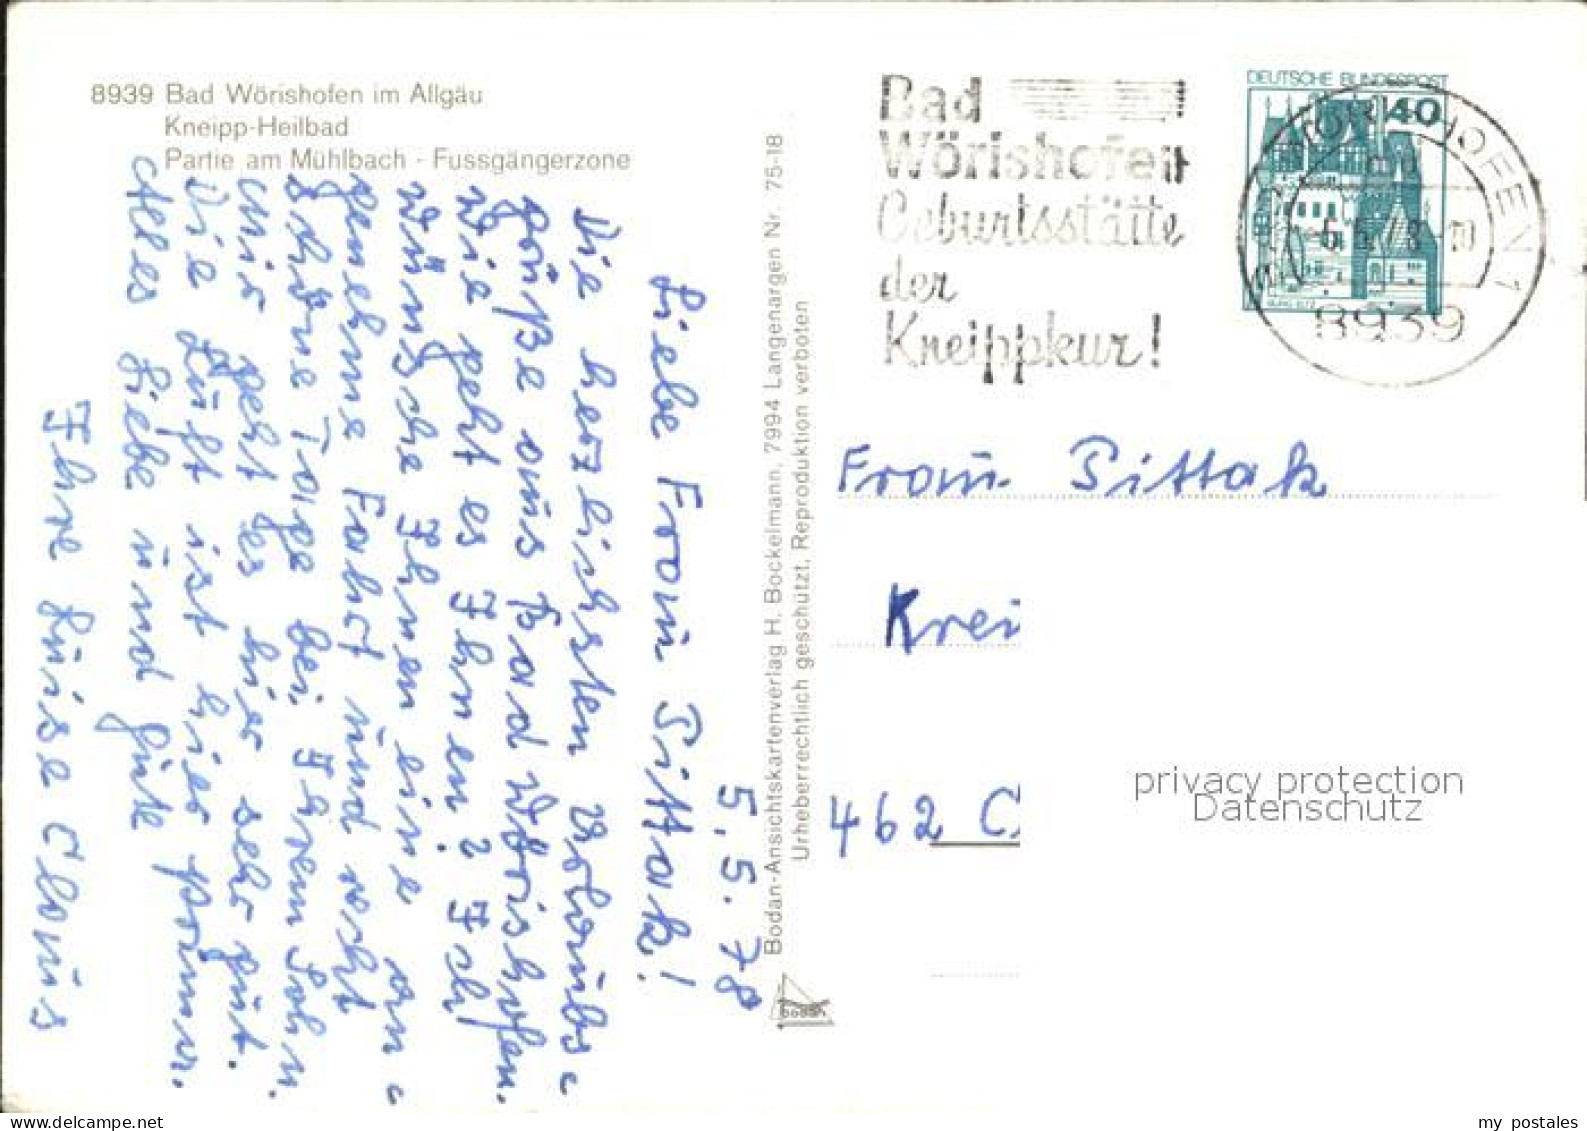 8939 Bad Wörishofen im Allgäu
Kneipp-Heilbad
Partie am Mühlbach - Fussgängerzone
5.5.78
Liebe Frau Pittak!
Die herzlichsten Urlaubs-
grüße aus Bad Wörishofen.
Wie geht es Ihnen? Ich
wünsche Ihnen eine an-
genehme Fahrt und recht
schöne Tage bei Ihrem Sohn.
Mir geht es hier sehr gut.
Die Luft ist hier prima.
Alles Liebe und Gute
Ihre Luise Clauis
Bodan-Ansichtskartenverlag H. Bockelmann, 7994 Langenargen Nr. 75-18
Urheberrechtlich geschützt, Reproduktion verboten
Bad
Wörishofen
Geburtsstätte
der
Kneippkur!
DEUTSCHE BUNDESPOST
40
BURG ELTZ
BAD WÖRISHOFEN 1
8939
Frau Pittak
Krei
462 C
privacy protection
Datenschutz
my postales